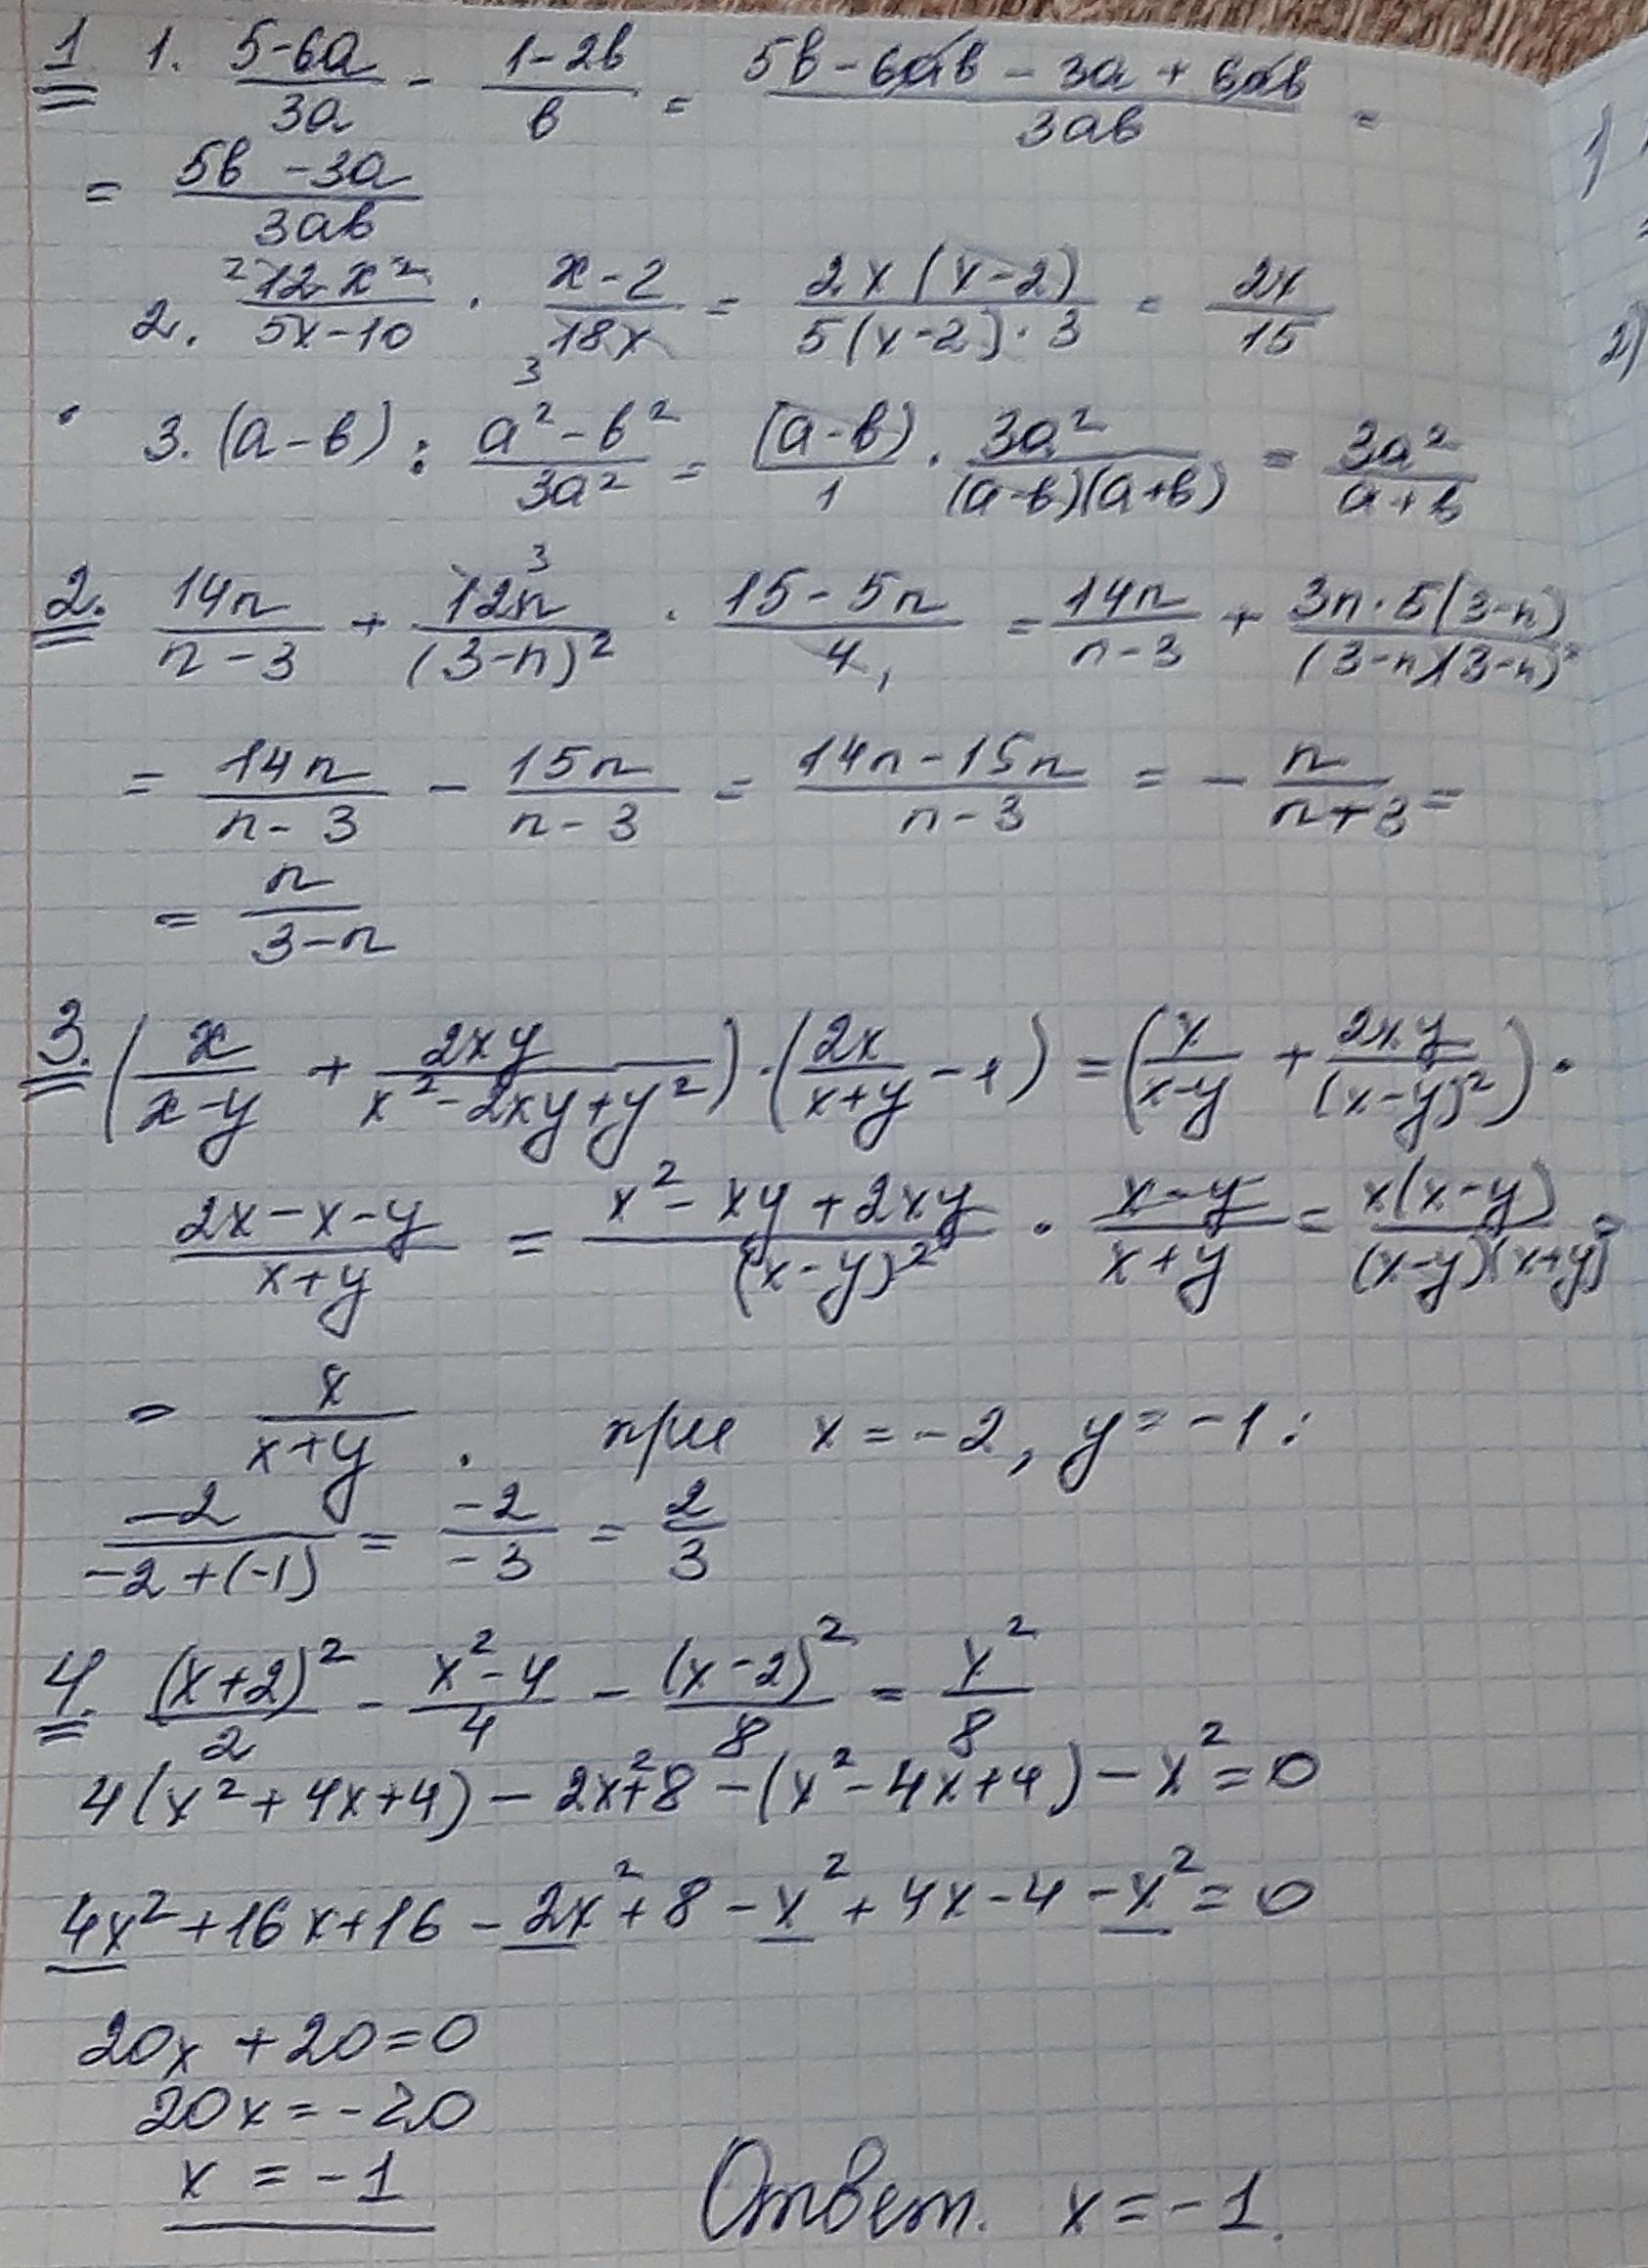 1 1. (5-6a)/(3a) - (1-2b)/b = (5b - 6ab - 3a + 6ab)/(3ab) =
= (5b - 3a)/(3ab)
2. (12x²)/(5x-10) · (x-2)/(18x) = (2x(x-2))/(5(x-2)·3) = 2x/15
3. (a-b) : (a²-b²)/(3a²) = (a-b)/1 · 3a²/((a-b)(a+b)) = 3a²/(a+b)
2. 14n/(n-3) + 12n/(3-n)² · (15-5n)/4 = 14n/(n-3) + (3n·5(3-n))/((3-n)(3-n)) =
= 14n/(n-3) - 15n/(n-3) = (14n-15n)/(n-3) = - n/(n+3) =
= n/(3-n)
3. (x/(x-y) + 2xy/(x²-2xy+y²)) · (2x/(x+y) - 1) = (x/(x-y) + 2xy/(x-y)²) ·
(2x-x-y)/(x+y) = (x²-xy+2xy)/(x-y)² · (x-y)/(x+y) = x(x-y)/((x-y)(x+y)) =
= x/(x+y). при x = -2, y = -1:
-2/(-2+(-1)) = -2/-3 = 2/3
4. (x+2)²/2 - (x²-4)/4 - (x-2)²/8 = x²/8
4(x²+4x+4) - 2x²+8 - (x²-4x+4) - x² = 0
4x²+16x+16 - 2x²+8 - x²+4x-4 - x² = 0
20x + 20 = 0
20x = -20
x = -1
Ответ. x = -1.
1)
2)